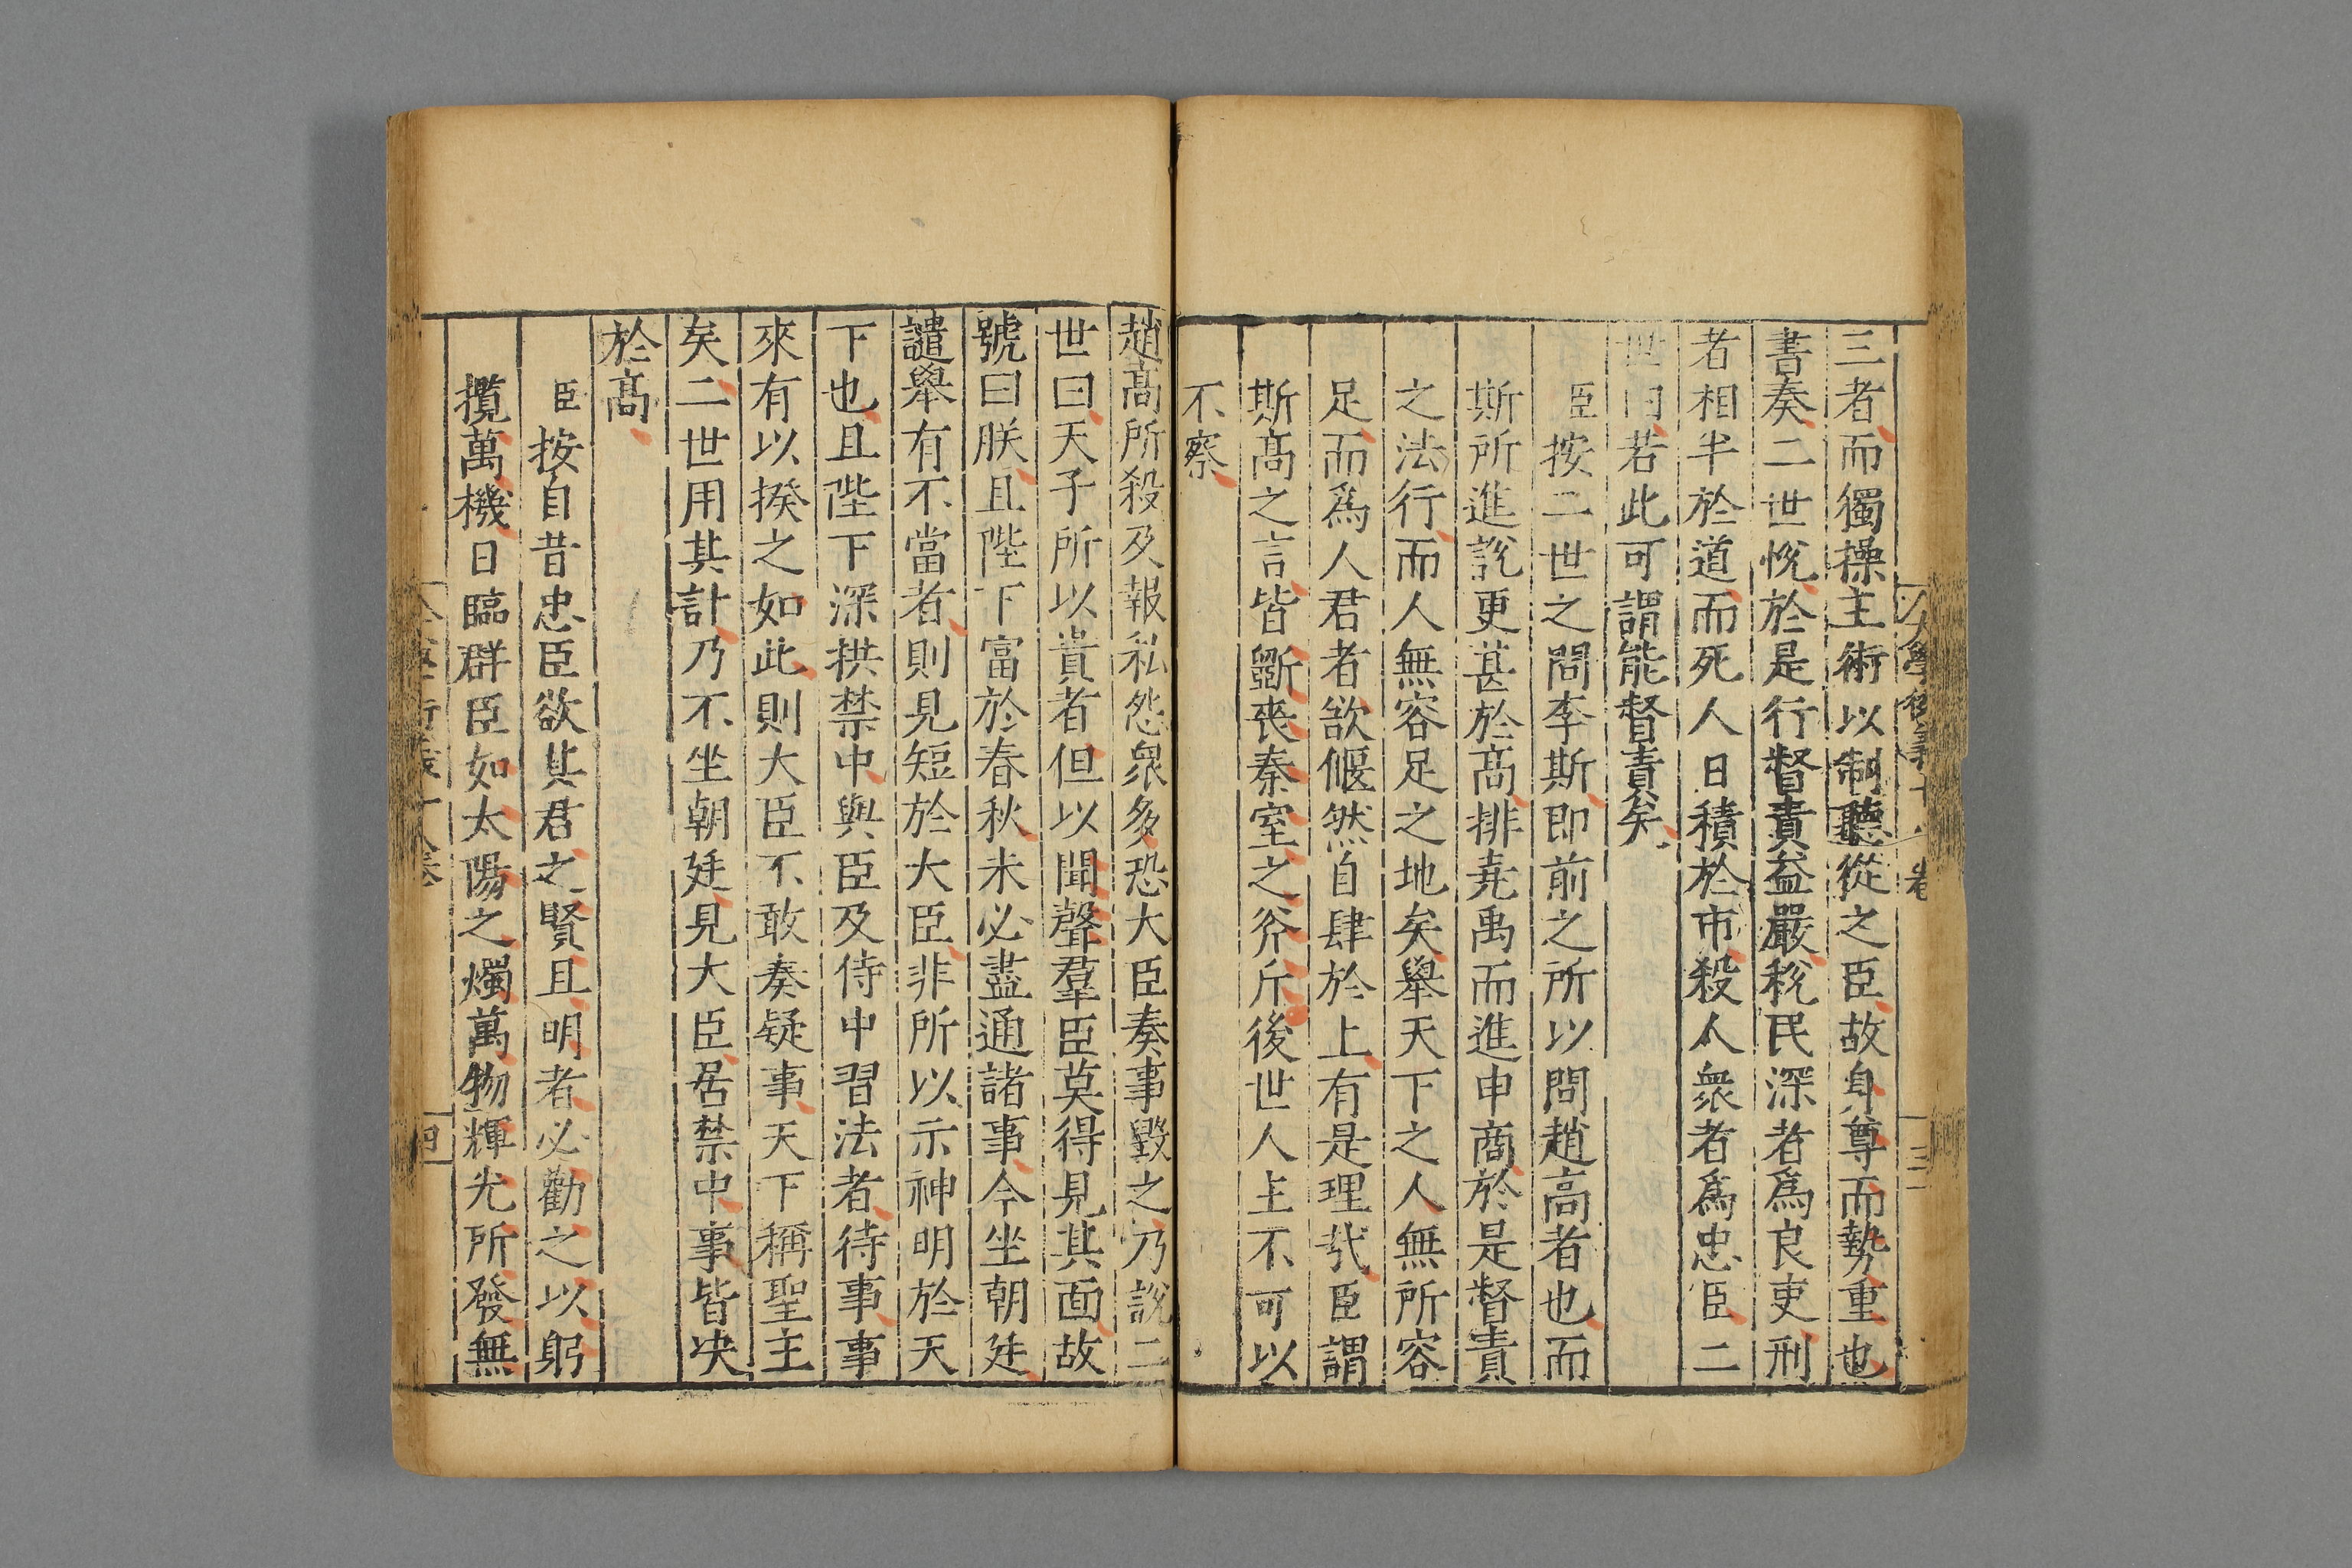 大學衍義十八卷
三
三者而獨操主術以制聽從之臣故身尊而勢重也
書奏二世悅於是行督責益嚴稅民深者爲良吏刑
者相半於道而死人日積於市殺人衆者爲忠臣二
世曰若此可謂能督責矣
臣按二世之問李斯即前之所以問趙高者也而
斯所進說更甚於高排堯禹而進申商於是督責
之法行而人無容足之地矣舉天下之人無所容
足而爲人君者欲偃然自肆於上有是理哉臣謂
斯高之言皆斲喪秦室之斧斤後世人主不可以
不察
趙高所殺及報私怨衆多恐大臣奏事毀之乃說二
世曰天子所以貴者但以聞聲羣臣莫得見其面故
號曰朕且陛下富於春秋未必盡通諸事今坐朝廷
譴舉有不當者則見短於大臣非所以示神明於天
下也且陛下深拱禁中與臣及侍中習法者待事事
來有以揆之如此則大臣不敢奏疑事天下稱聖主
矣二世用其計乃不坐朝廷見大臣居禁中事皆决
於高
臣按自昔忠臣欲其君之賢且明者必勸之以躬
攬萬機日臨群臣如太陽之燭萬物輝光所發無
大學衍義十八卷
四